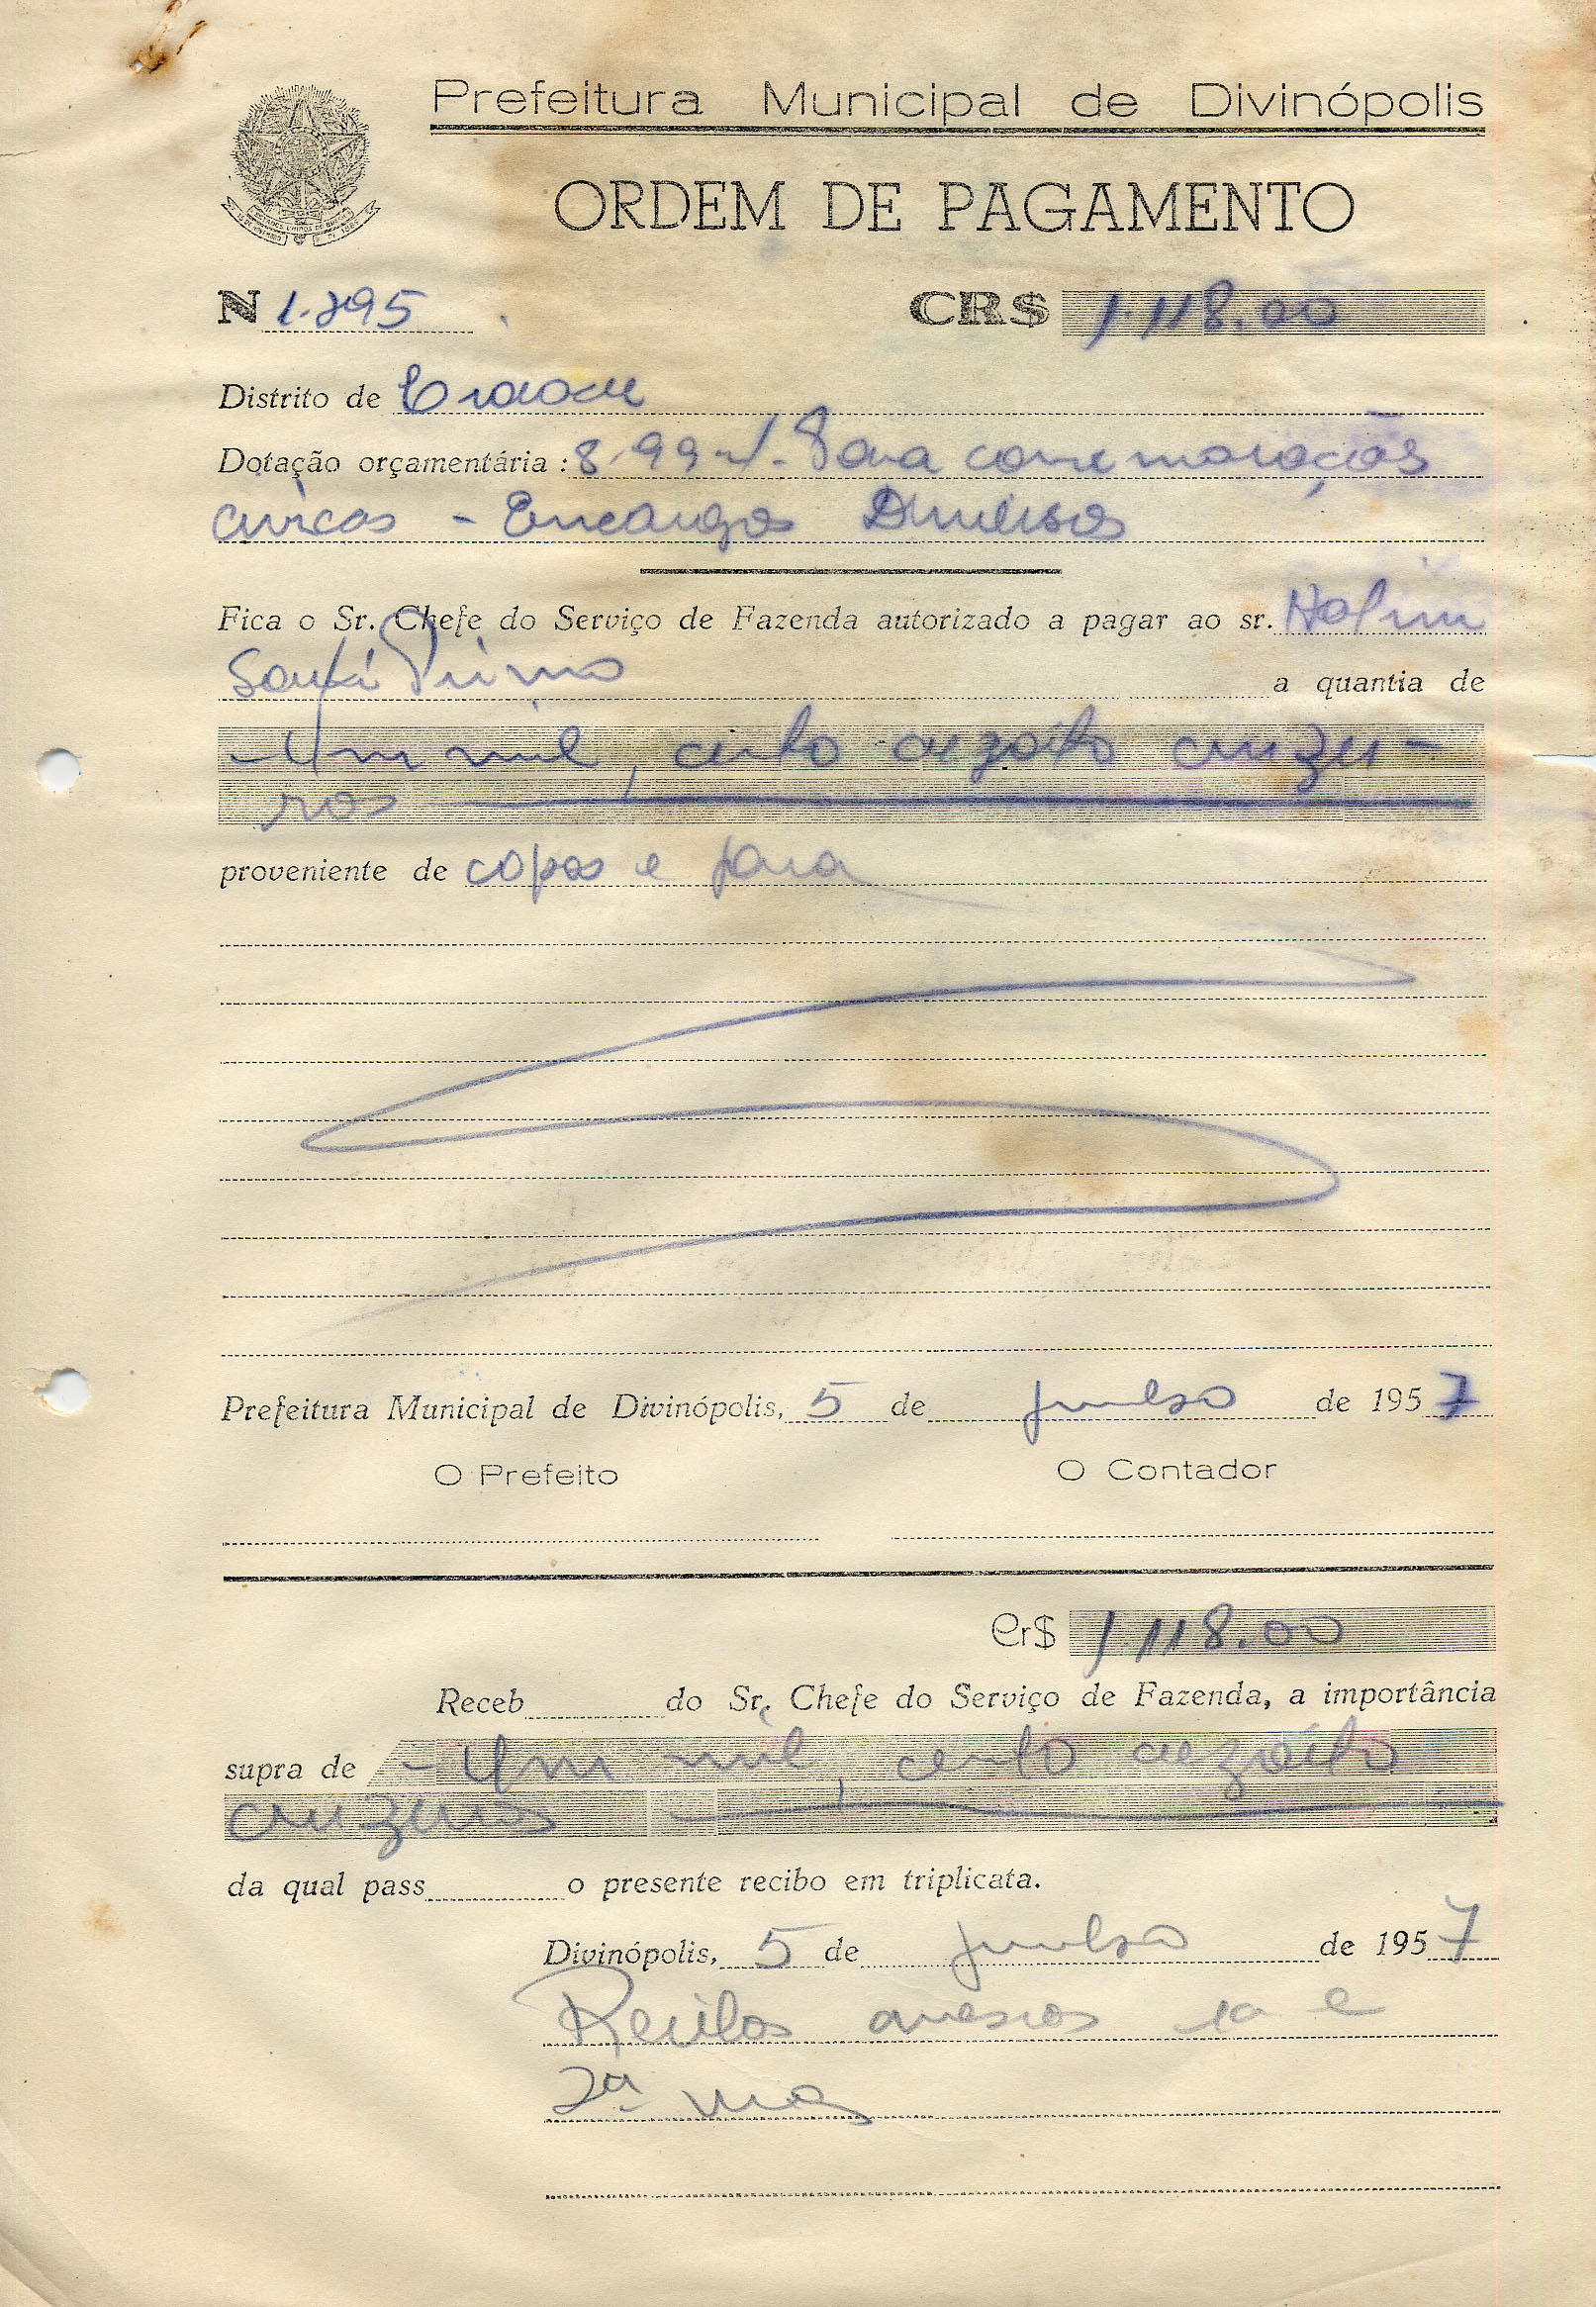 Prefeitura Municipal de Divinópolis
ORDEM DE PAGAMENTO
N 1.295 CR$ 1.118.00
Distrito de Cidade
Dotação orçamentária: 8-99-1. Para comemorações
cívicas - Encargos Diversos
Fica o Sr. Chefe do Serviço de Fazenda autorizado a pagar ao sr. Halim
Souki Primo a quantia de
- Um mil, cento dezoito cruzei-
ros
proveniente de copos e para
Prefeitura Municipal de Divinópolis, 5 de junho de 1957
O Prefeito O Contador
Cr$ 1.118.00
Receb do Sr. Chefe do Serviço de Fazenda, a importância
supra de - Um mil, cento dezoito
cruzeiros
da qual pass o presente recibo em triplicata.
Divinópolis, 5 de junho de 1957
Recibos anexos 1a e
2a vias